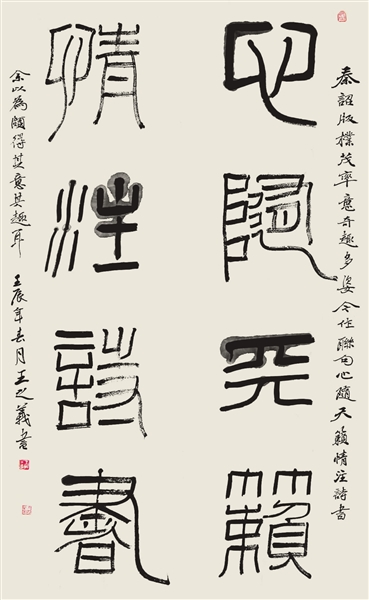 秦詔版樸茂率意奇趣多姿今作聯句心隨天籟情注詩書
心隨天籟
情注詩書
余以為頗得其意其趣耳 壬辰年春月王之義書